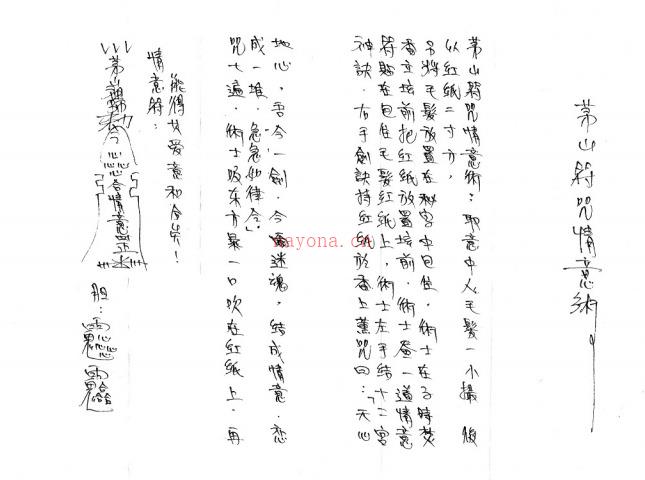 茅山符咒情意術
茅山符咒情意術：取意中人毛髮一小撮 後
以紅紙二寸方，
名將毛髮放置在秘字中包住，術士在子時焚
香立坛前把紅紙放置坛前，術士畫一道情意
符貼在包住毛髮紅紙上，術士左手結十二宮
神訣，右手劍訣持紅紙於香上薰咒曰：「天心
地心，吾今一劍，令 迷魂，結成情意，恋
成一堆，急急如律令」
咒七遍，術士吸東方炁一口吹在紅紙上，再
能得女爱意和合矣！
情意符：
茅山 勅令心心心合情意
胆：
nayona.cn